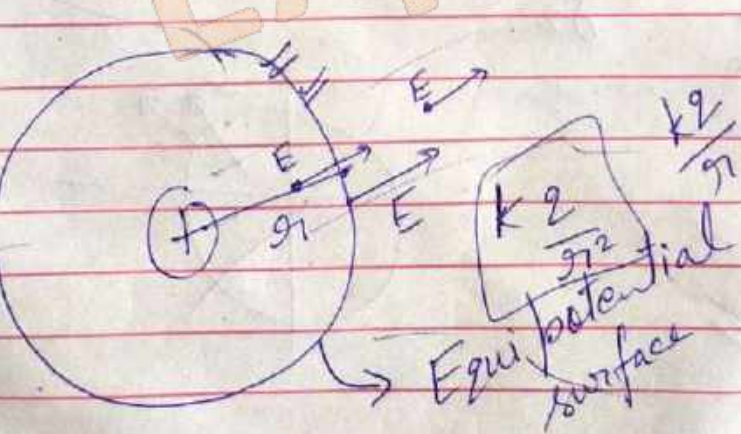 E
E
+
r
E
k q/r²
kq/r
Equipotential
surface